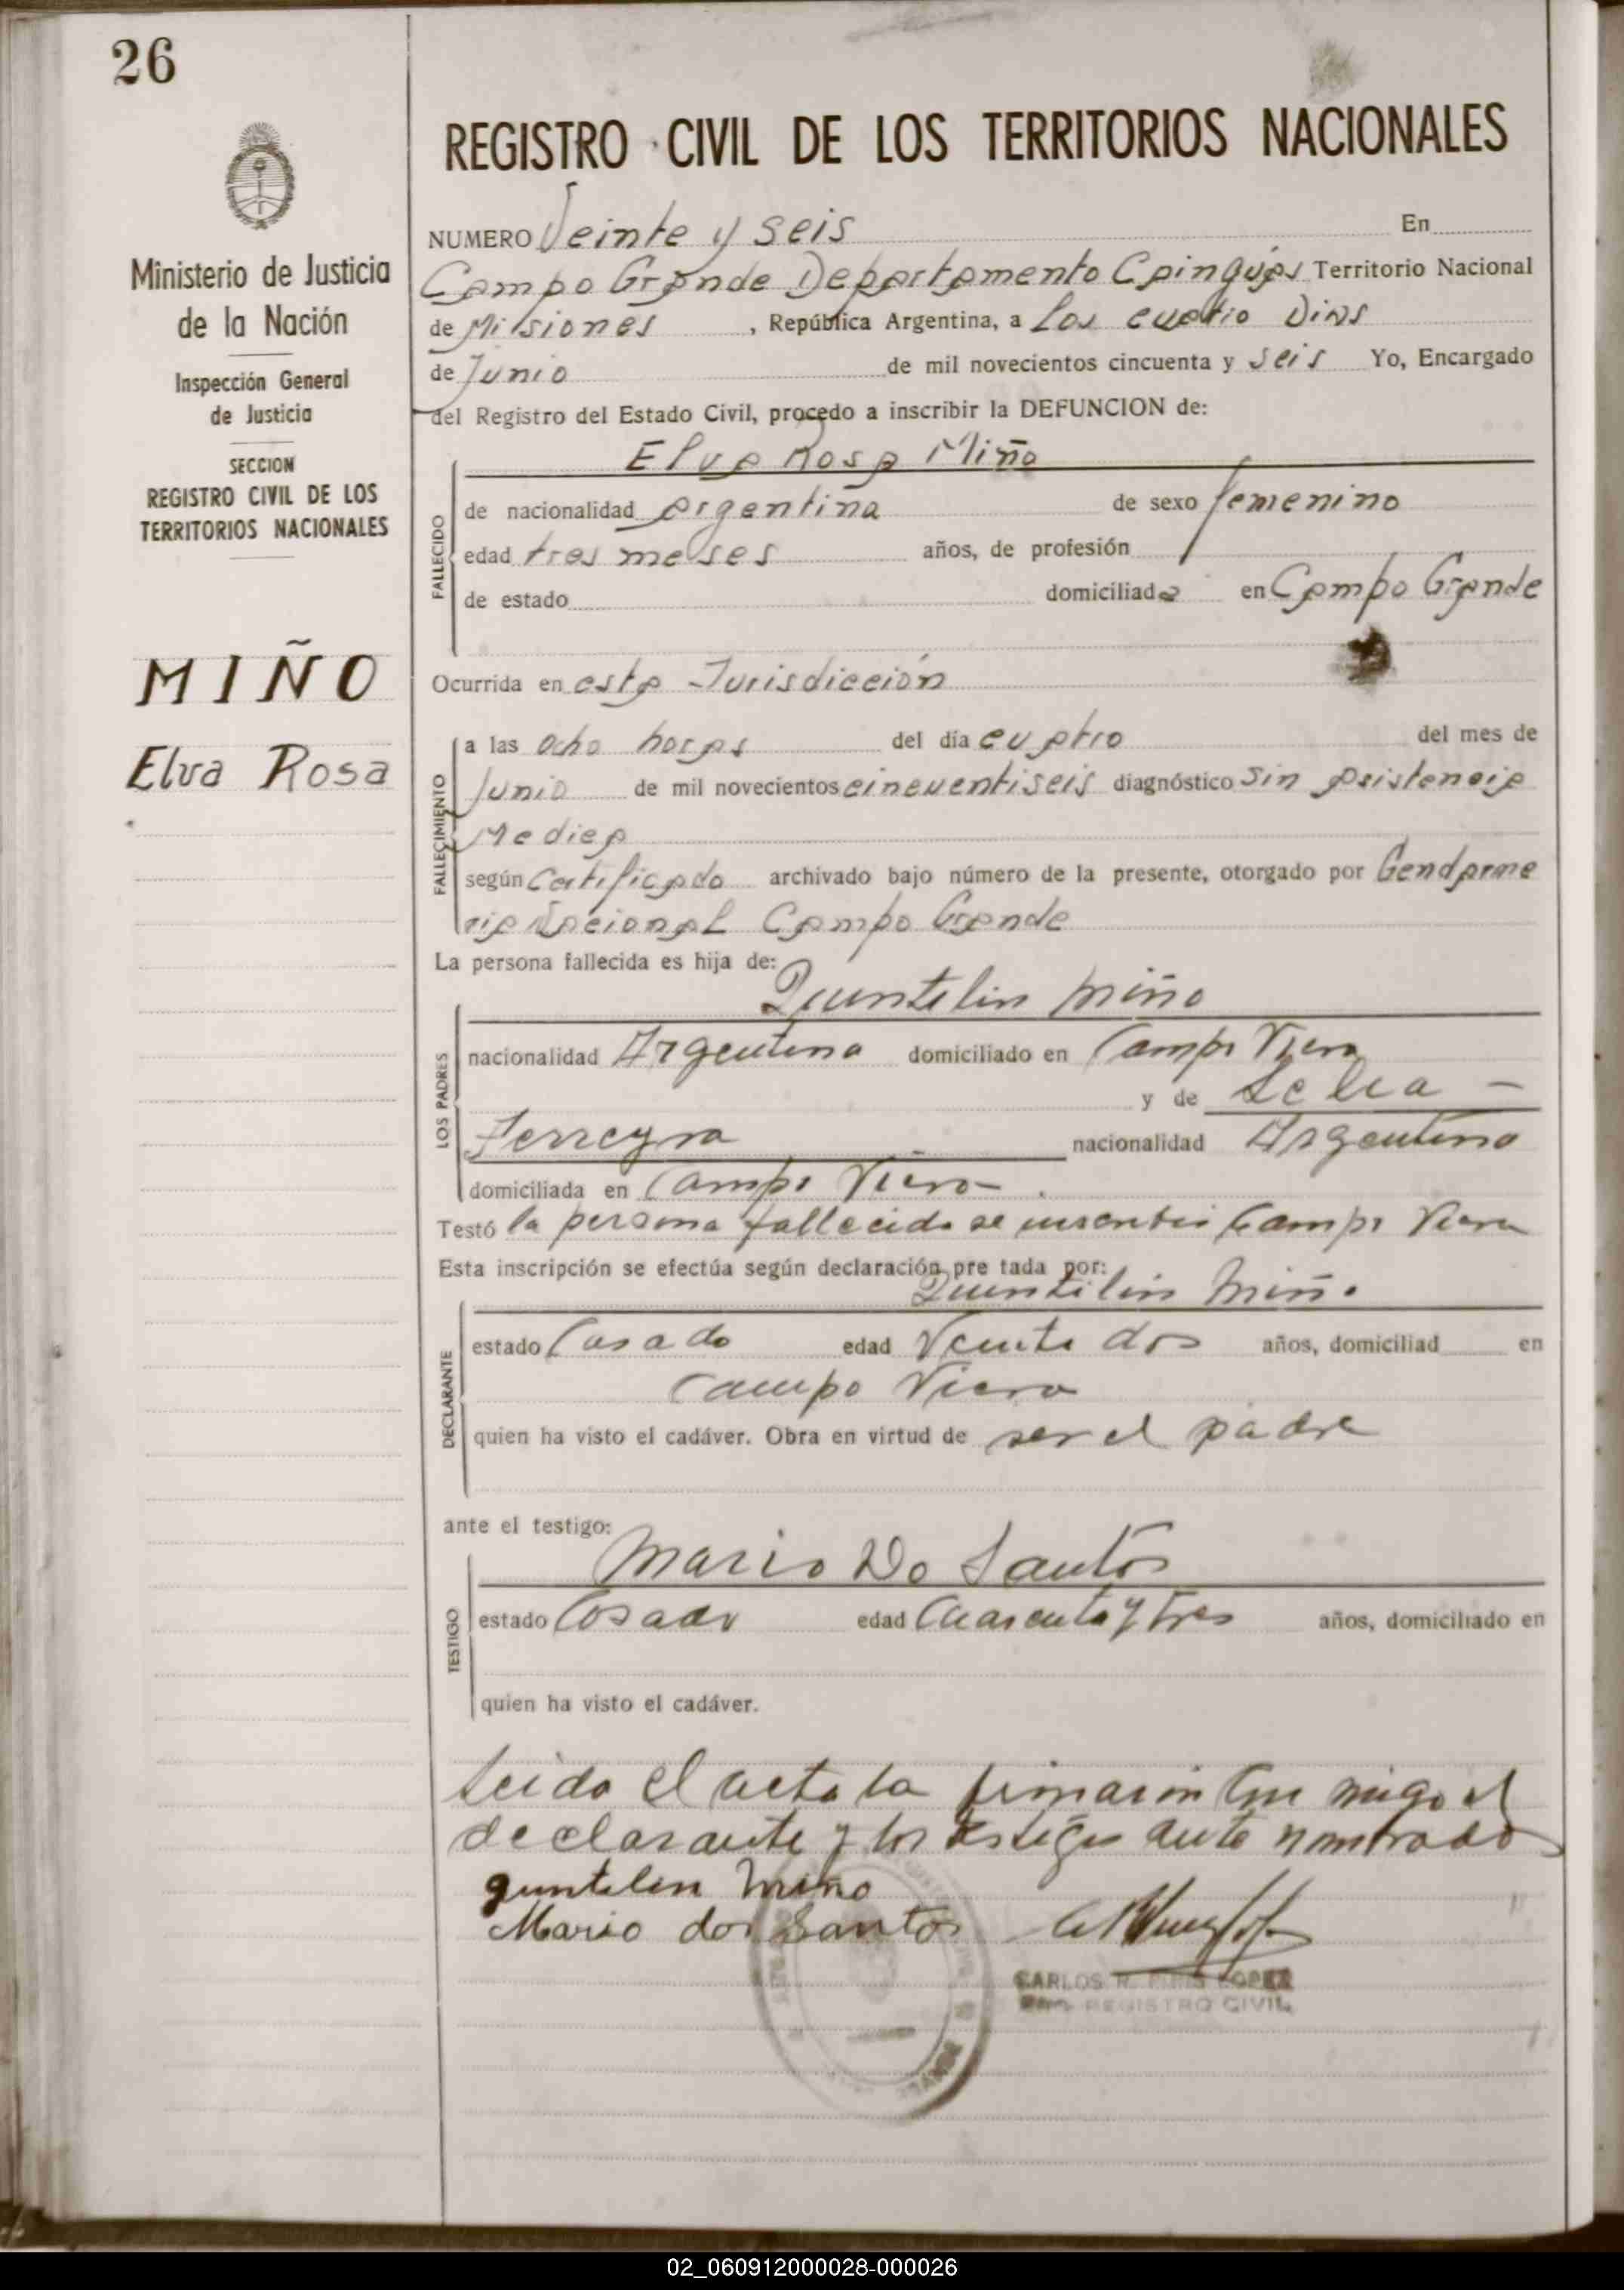 26
Ministerio de Justicia
de la Nación
Inspección General
de Justicia
SECCION
REGISTRO CIVIL DE LOS
TERRITORIOS NACIONALES
MIÑO
Elva Rosa
REGISTRO CIVIL DE LOS TERRITORIOS NACIONALES
NUMERO Veinte y seis En
Campo Grande Departamento Cainguás Territorio Nacional
de Misiones, República Argentina, a los cuatro Dias
de Junio de mil novecientos cincuenta y seis Yo, Encargado
del Registro del Estado Civil, procedo a inscribir la DEFUNCION de:
Elva Rosa Miño
FALLECIDO
de nacionalidad argentina de sexo femenino
edad tres meses años, de profesión
de estado domiciliada en Campo Grande
Ocurrida en esta Jurisdicción
FALLECIMIENTO
a las ocho horas del día cuatro del mes de
Junio de mil novecientos cincuentiseis diagnóstico sin asistencia
Medica
según Certificado archivado bajo número de la presente, otorgado por Gendarme
ria Nacional Campo Grande
La persona fallecida es hija de:
Quintilin Miño
LOS PADRES
nacionalidad Argentina domiciliado en Campo Viera
y de Lelia -
Ferreyra nacionalidad Argentina
domiciliada en Campo Viera.
Testó la persona fallecida se Campo Viera
Esta inscripción se efectúa según declaración pre tada por:
Quintilin Miño
DECLARANTE
estado Casado edad Veinte dos años, domiciliad en
Campo Viera
quien ha visto el cadáver. Obra en virtud de ser el padre
ante el testigo:
Mario Do Santos
TESTIGO
estado Casado edad Cuarenta y Tres años, domiciliado en
quien ha visto el cadáver.
Leida el acta la firmaron con migo el
declarante y los testigos ante nombrado
quintilin Miño
Mario dos Santos
CARLOS R. LOPEZ
ENC. REGISTRO CIVIL
02_060912000028-000026